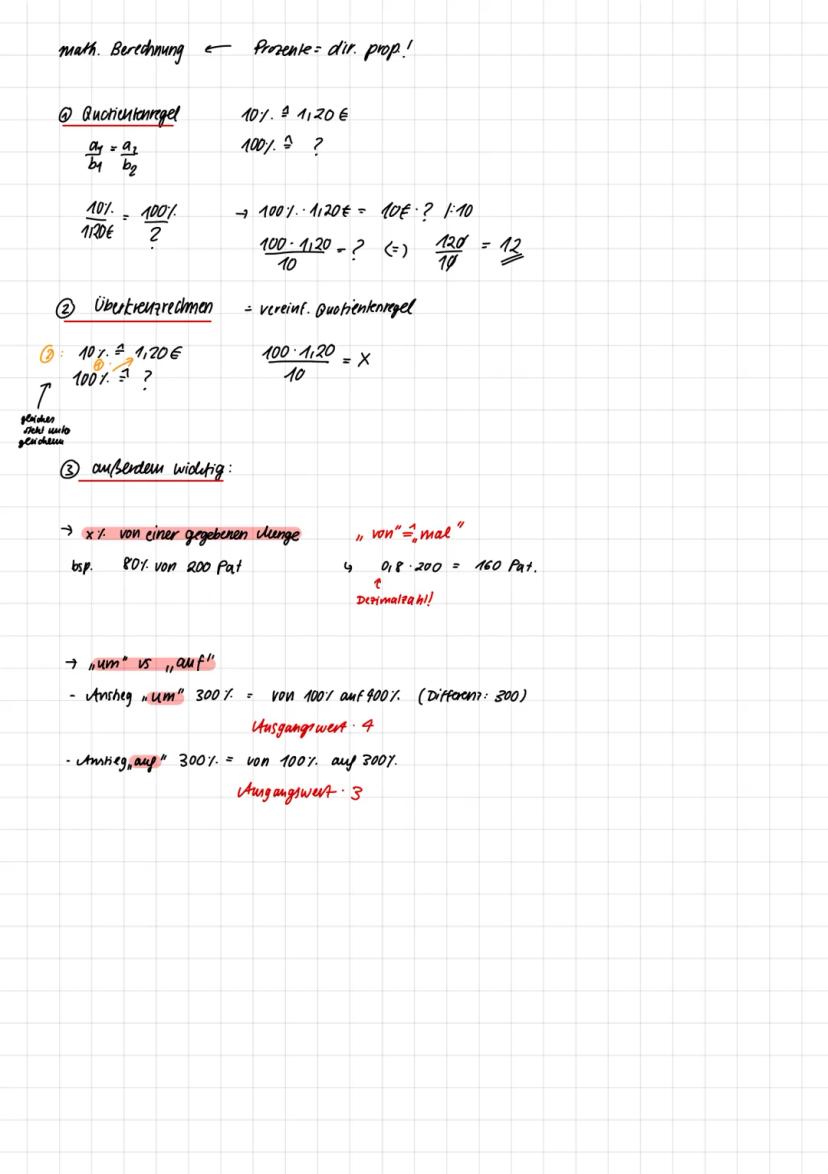 math. Berechnung ← Prozente = dir. prop!
① Quotientenregel 10% ≙ 1,20 €
a1/b1 = a2/b2 100% ≙ ?
10%/1,20€ = 100%/? → 100% · 1,20€ = 10€ · ? |:10
100 · 1,20/10 = ? (=) 120/10 = 12
② Überkreuzrechnen = vereinf. Quotientenregel
②: 10% ≙ 1,20€ 100 · 1,20/10 = x
①
100% ≙ ?
gleiches
steht unter
gleichem
③ außerdem wichtig:
→ x% von einer gegebenen Menge „von“ ≙ „mal“
bsp. 80% von 200 Pat ↳ 0,8 · 200 = 160 Pat.
↑
Dezimalzahl!
→ „um“ vs „auf“
- Anstieg „um“ 300% = von 100% auf 400% (Differenz: 300)
Ausgangswert · 4
- Anstieg „auf“ 300% = von 100% auf 300%.
Ausgangswert · 3